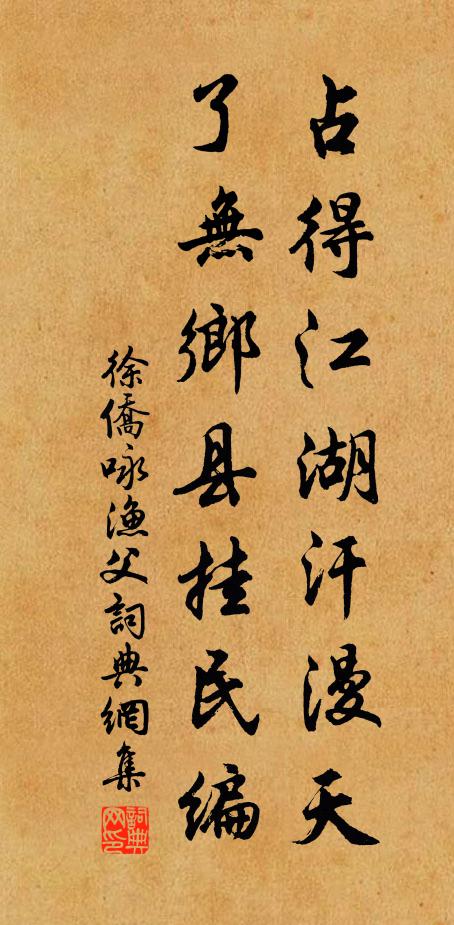 占得江湖汗漫天
了無鄉县挂民编
徐僑咏渔父詞典網集
詞典网印